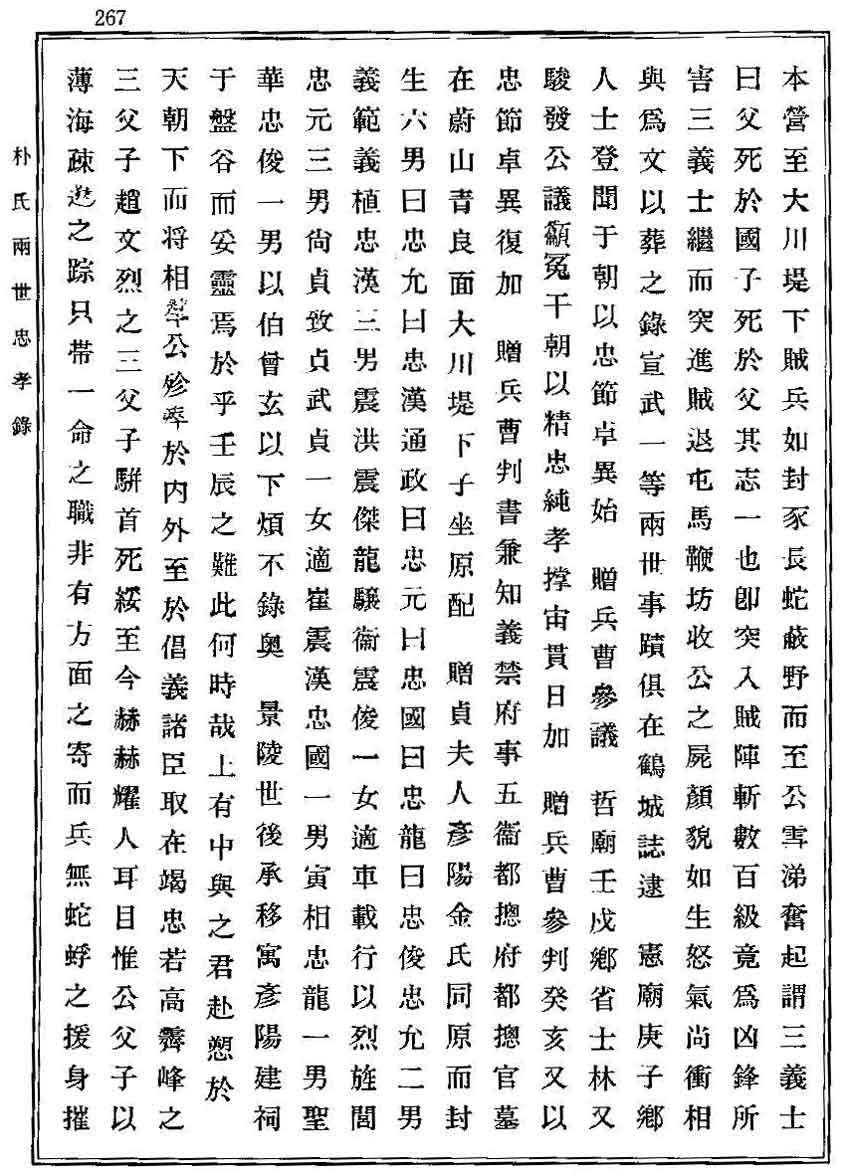 267
朴氏兩世忠孝錄
本營至大川堤下賊兵如封豕長蛇蔽野而至公雪涕奮起謂三義士
曰父死於國子死於父其志一也卽突入賊陣斬數百級竟爲凶鋒所
害三義士繼而突進賊退屯馬鞭坊收公之屍顏貌如生怒氣尚衝相
與爲文以葬之錄宣武一等兩世事蹟俱在鶴城誌逮 憲廟庚子鄉
人士登聞于朝以忠節卓異始 贈兵曹參議 哲廟壬戌鄉省士林又
駿發公議籲冤干朝以精忠純孝撑宙貫日加 贈兵曹參判癸亥又以
忠節卓異復加 贈兵曹判書兼知義禁府事五衞都摠府都摠官墓
在蔚山靑良面大川堤下子坐原配 贈貞夫人彥陽金氏同原而封
生六男曰忠允曰忠漢通政曰忠元曰忠國曰忠龍曰忠俊忠允二男
義範義植忠漢三男震洪震傑龍驤衞震俊一女適車載行以烈旌閭
忠元三男尙貞致貞武貞一女適崔震漢忠國一男寅相忠龍一男聖
華忠俊一男以伯曾玄以下煩不錄奧 景陵世後承移寓彥陽建祠
于盤谷而妥靈焉於乎壬辰之難此何時哉上有中興之君赴愬於
天朝下而将相犖公殄瘁於内外至於倡義諸臣取在竭忠若高霽峰之
三父子趙文烈之三父子駢首死綏至今赫赫耀人耳目惟公父子以
薄海疎逖之踪只帶一命之職非有方面之寄而兵無蛇蜉之援身摧